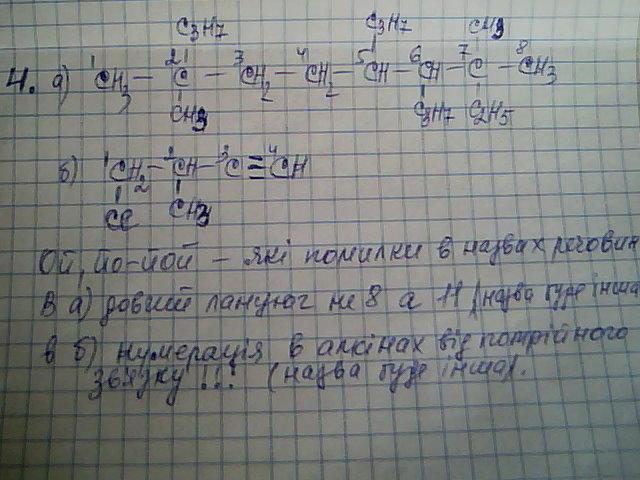 C3H7 C3H7 CH3
4. а) ¹CH3 — ²C — ³CH2 — ⁴CH2 — ⁵CH — ⁶CH — ⁷C — ⁸CH3
CH3 C3H7 C2H5
б) ¹CH2 — ²CH — ³C ≡ ⁴CH
Cl CH3
Ой, йо-йой — які помилки в назвах речовин
В а) довший ланцюг не 8 а 11 (назва буде інша
в б) нумерація в алкінах від потрійного
звязку !!! (назва буде інша).